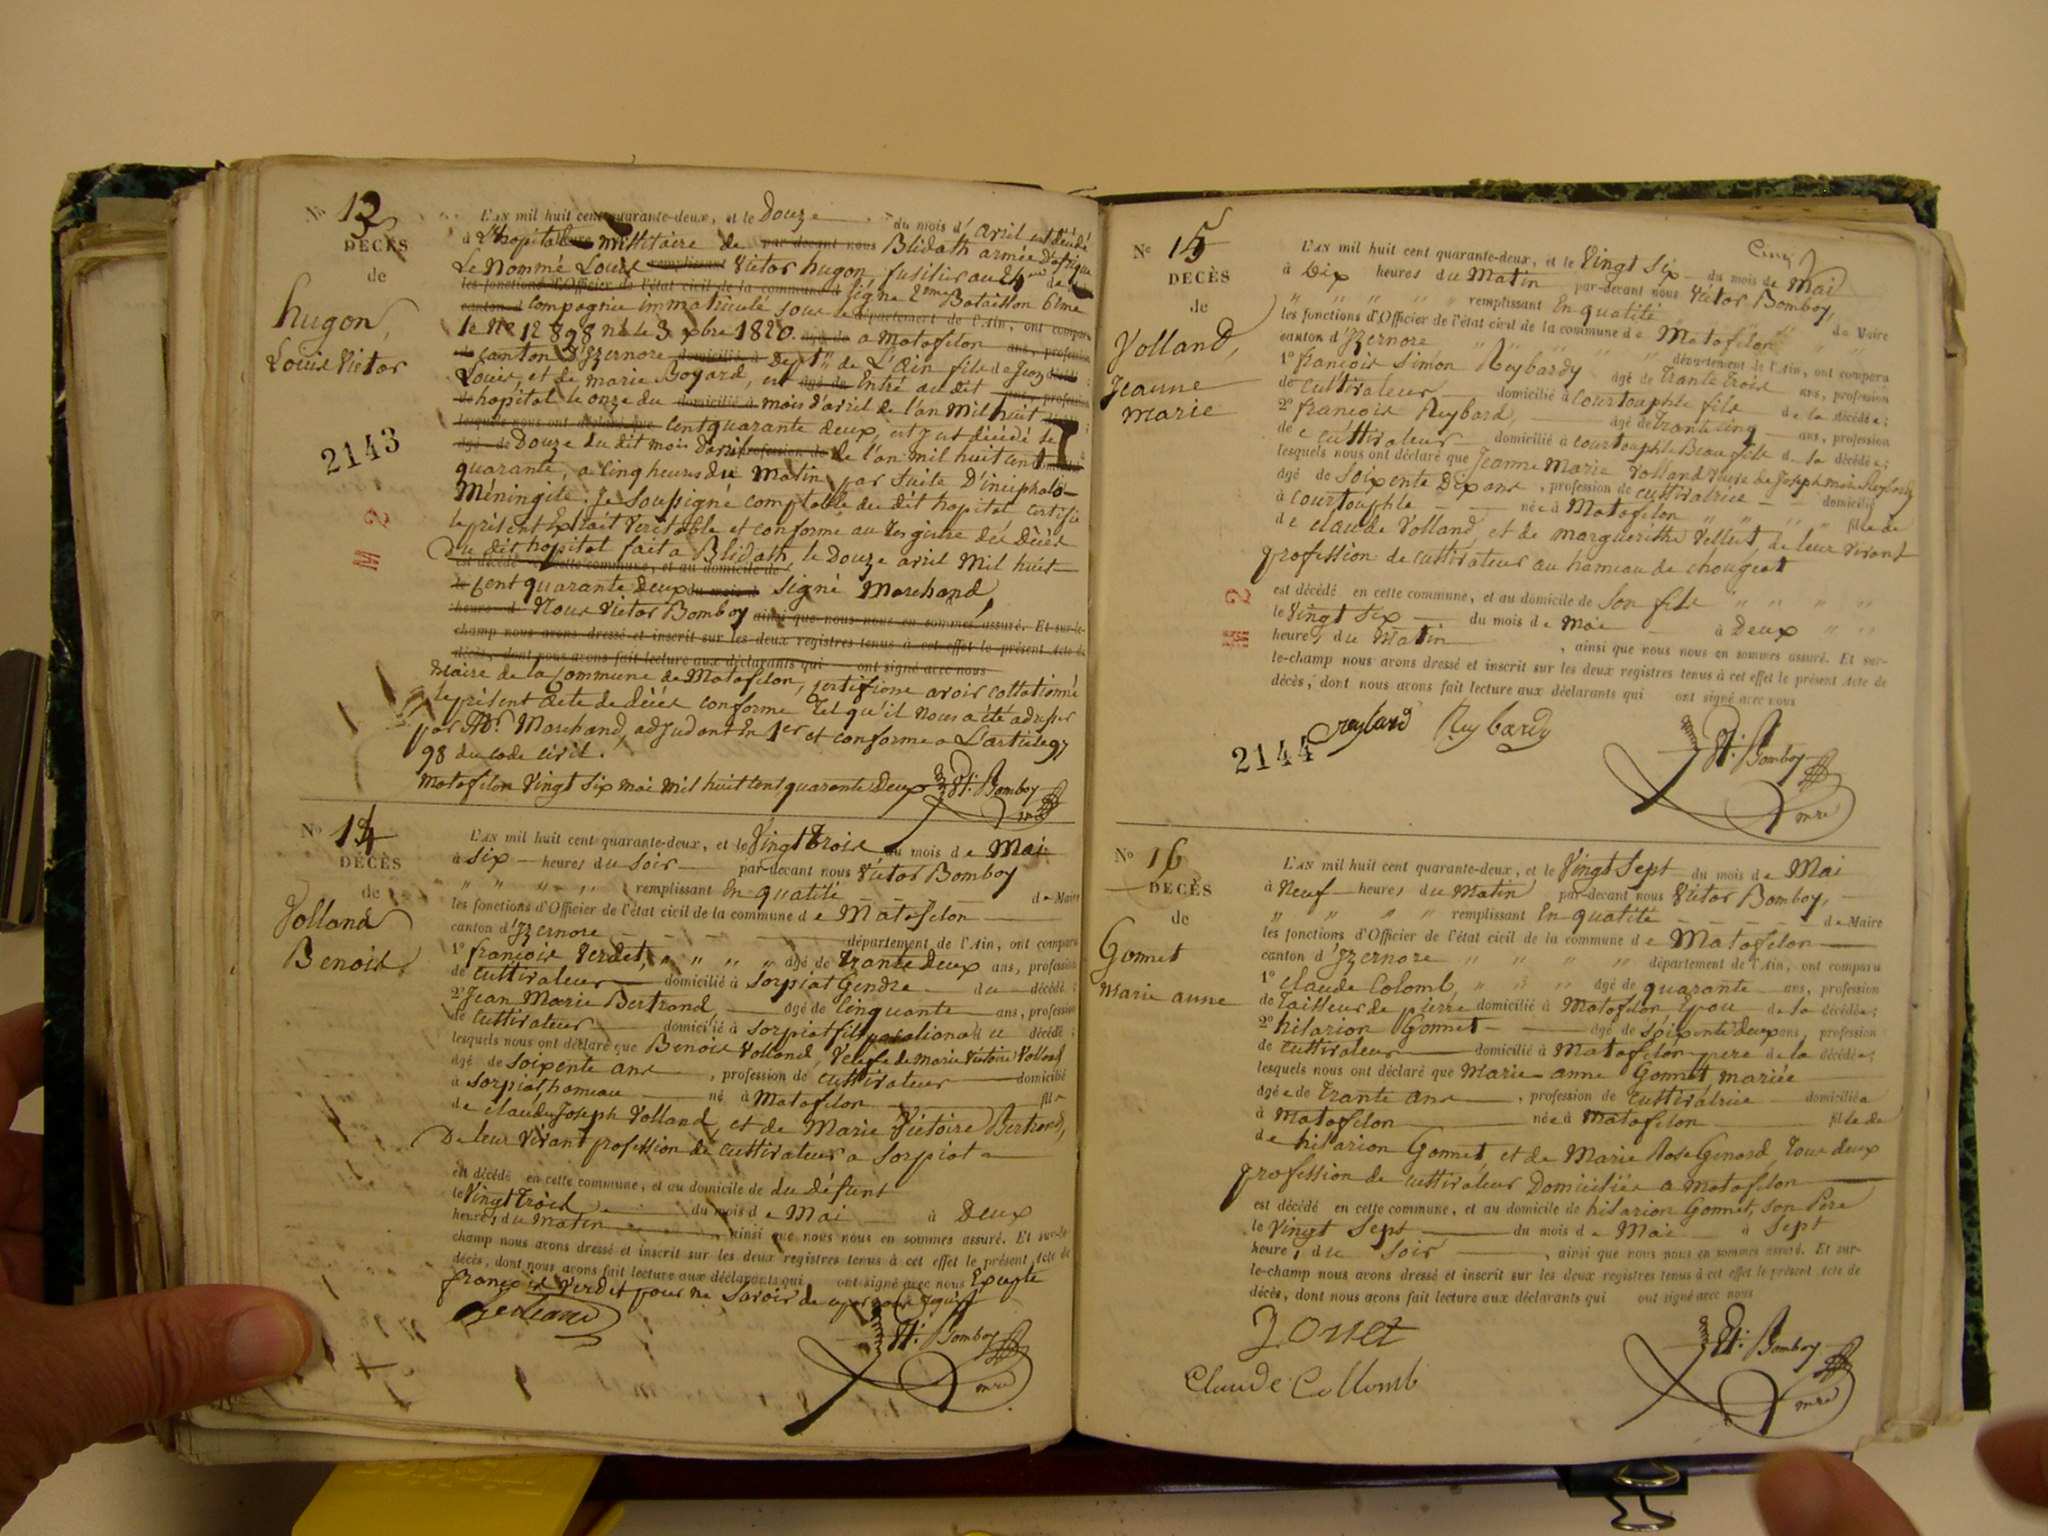 Nº 13
DÉCÈS
de
hugon,
Louis Victor
2143
L'AN mil huit cent quarante-deux, et le Douze du mois d'avril est décédé
à L'hopital militaire de par-devant nous Blidath armée D'afrique
Le Nommé Louis remplissant Victor hugon, fusilier au 24me de
les fonctions d'Officier de l'état civil de la commune d ligne 2eme Bataillon 6me
canton d compagnie immatriculé sous le département de l'Ain, ont comparu
le Nº 12898 né le 3 xbre 1820. âgé de a Matafelon ans, profession
de canton D'Izernore domicilié à Dept de L'Ain fils de Jean
Louis, et de marie Boyard, est âgé de Entré au dit ans, profession
de hopital le onze du domicilié à mois d'avril de l'an Mil huit
lesquels nous ont déclaré que Cent quarante deux, est décédé le
âgé de Douze du dit mois d'avril profession de de l'an mil huit cent
quarante, a cinq heures du Matin par suite D'inciphalo-
Méningite. Je soussigné comptable du dit hopital certifie
le présent Extrait Veritable et conforme au registre des Décès
Du dit hopital fait a Blidath le Douze avril Mil huit
est décédé en cette commune, et au domicile de
le Cent quarante Deux du mois d signé Marchand
heure d Nous Victor Bomboy ainsi que nous nous en sommes assuré. Et sur-le-
champ nous avons dressé et inscrit sur les deux registres tenus à cet effet le présent Acte de
décès, dont nous avons fait lecture aux déclarants qui ont signé avec nous
Maire de la Commune de Matafelon, certifions avoir collationné
le présent acte de décès conforme Tel qu'il nous a été adresser
par Mr Marchand, adjudant En 1er et conforme a L'article 97
98 du code civil.
Matafelon Vingt Six mai Mil huit Cent quarante Deux Vt. Bomboy
mre
Nº 14
DÉCÈS
de
Volland
Benoit
L'AN mil huit cent quarante-deux, et le Vingt Trois du mois de Mai
à Six heures du Soir par-devant nous Victor Bomboy
remplissant En qualité de Maire
les fonctions d'Officier de l'état civil de la commune de Matafelon
canton d'Izernore département de l'Ain, ont comparu
1º françois Verdet, âgé de Trante Deux ans, profession
de Cultivateur domicilié à Sorpiat Gendre du décédé;
2º Jean Marie Bertrand, âgé de Cinquante ans, profession
de Cultivateur domicilié à Sorpiat du décédé;
lesquels nous ont déclaré que Benoit Volland, Veuf de Marie Victoire Volland
âgé de Soixente ans, profession de Cultivateur domicilié
à Sorpiat, hameau né à Matafelon fils
de claude Joseph Volland, et de Marie Victoire Bertrand,
De leur Vivant profession de Cultivateur a Sorpiat
est décédé en cette commune, et au domicile de du Défunt
le Vingt Trois du mois de Mai à Deux
heures du Matin, ainsi que nous nous en sommes assuré. Et sur-le-
champ nous avons dressé et inscrit sur les deux registres tenus à cet effet le présent Acte de
décès, dont nous avons fait lecture aux déclarants qui ont signé avec nous Excepté
françois Verdet pour ne Savoir de ce
Vt. Bomboy
mre
Nº 15
DÉCÈS
de
Volland,
Jeanne
Marie
2144
L'AN mil huit cent quarante-deux, et le Vingt Six du mois de Mai
à Dix heures du Matin par-devant nous Victor Bomboy,
remplissant En qualité de Maire
les fonctions d'Officier de l'état civil de la commune de Matafelon
canton d'Izernore département de l'Ain, ont comparu
1º françois Simon Reybardy âgé de Trante Trois ans, profession
de Cultivateur domicilié à Courtouphle fils de la décédée;
2º françois Reybard, âgé de Trante Cinq ans, profession
de Cultivateur domicilié à Courtouphle Beau fils de la décédée;
lesquels nous ont déclaré que Jeanne Marie Volland Veuve de Joseph Marie Reybardy
âgé de Soixente Dix ans, profession de Cultivatrice domicilié
à Courtouphle née à Matafelon fille de
de Claude Volland, et de Marguerithe Vellut, de leur Vivant
profession de cultivateur au hameau de chougeat
est décédé en cette commune, et au domicile de Son fils
le Vingt Six du mois de Mai à Deux
heures du Matin, ainsi que nous nous en sommes assuré. Et sur-
le-champ nous avons dressé et inscrit sur les deux registres tenus à cet effet le présent Acte de
décès, dont nous avons fait lecture aux déclarants qui ont signé avec nous
Reybard Reybardy
Vt. Bomboy
mre
Nº 16
DÉCÈS
de
Gonnet
Marie anne
L'AN mil huit cent quarante-deux, et le Vingt Sept du mois de Mai
à Neuf heures du Matin par-devant nous Victor Bomboy,
remplissant En qualité de Maire
les fonctions d'Officier de l'état civil de la commune de Matafelon
canton d'Izernore département de l'Ain, ont comparu
1º Claude Colomb, âgé de quarante ans, profession
de Tailleur de pierre domicilié à Matafelon, Epou de la décédée;
2º hilarion Gonnet âgé de Soixente Deux ans, profession
de Cultivateur domicilié à Matafelon pere de la décédée;
lesquels nous ont déclaré que Marie anne Gonnet, mariée
âgée de Trante ans, profession de Cultivatrice domiciliée
à Matafelon née à Matafelon fille de
de hilarion Gonnet et de Marie Rose Genord, Tous deux
profession de Cultivateur Domiciliés a Matafelon
est décédé en cette commune, et au domicile de hilarion Gonnet, Son Pere
le Vingt Sept du mois de Mai à Sept
heures du Soir, ainsi que nous nous en sommes assuré. Et sur-
le-champ nous avons dressé et inscrit sur les deux registres tenus à cet effet le présent Acte de
décès, dont nous avons fait lecture aux déclarants qui ont signé avec nous
Gonet
Claude Collomb
Vt. Bomboy
mre